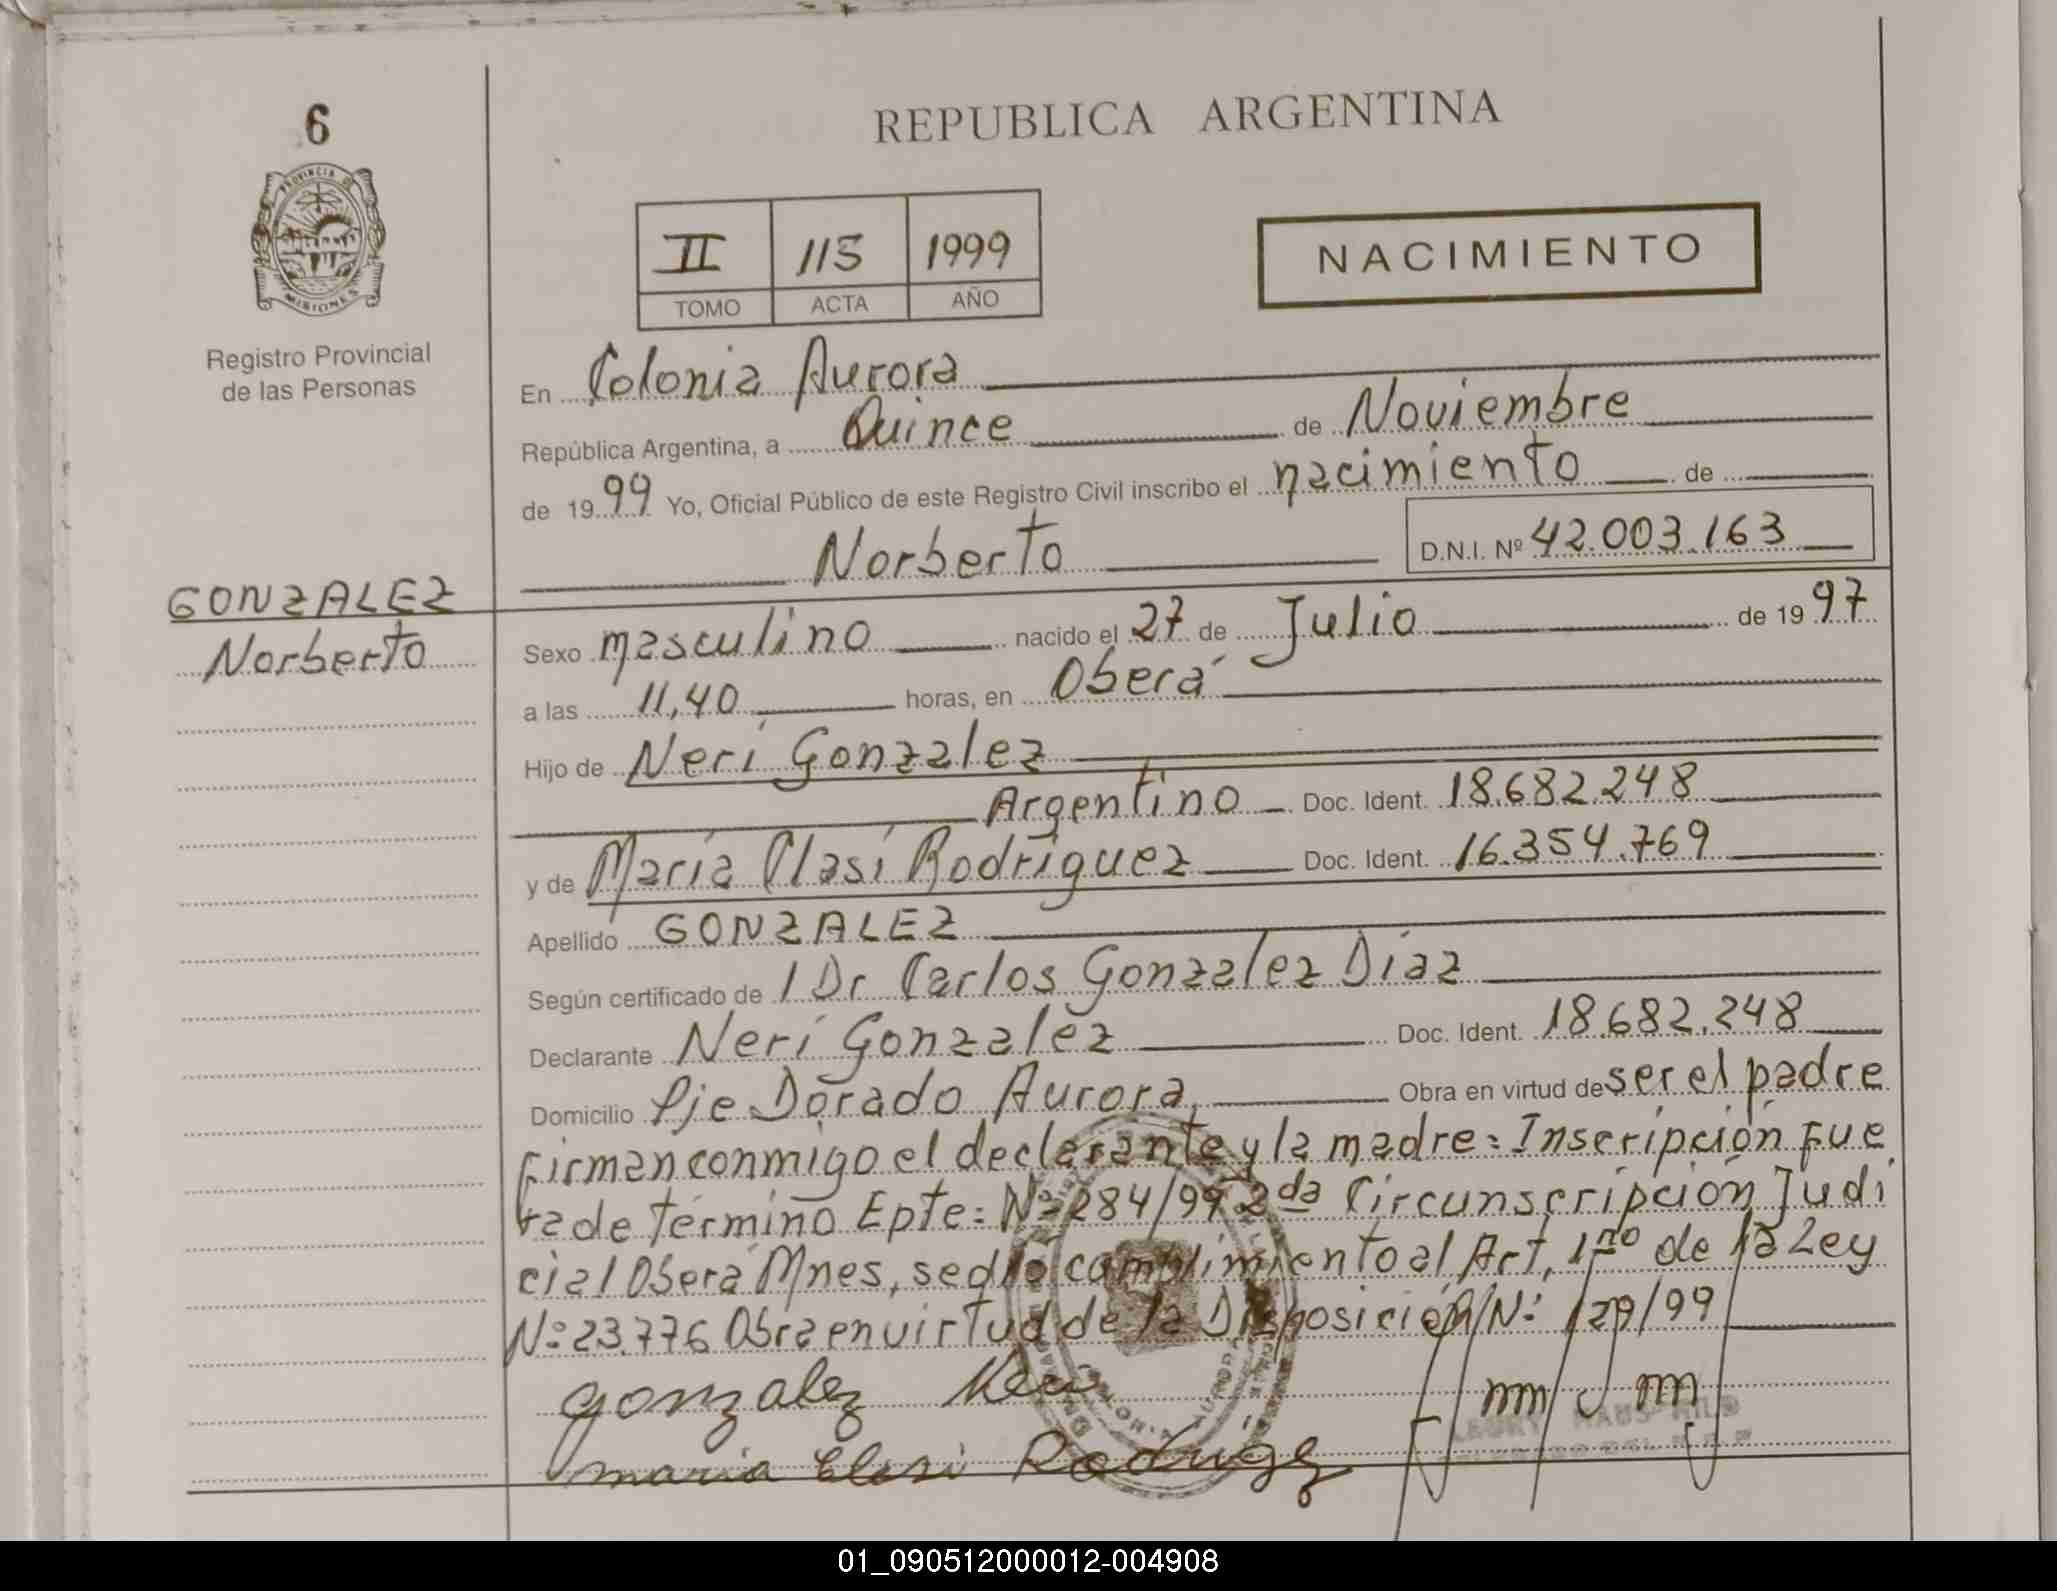 6
PROVINCIA DE
MISIONES
Registro Provincial
de las Personas
GONZALEZ
Norberto
REPUBLICA ARGENTINA
II 115 1999
TOMO ACTA AÑO
NACIMIENTO
En Colonia Aurora
República Argentina, a Quince de Noviembre
de 1999 Yo, Oficial Público de este Registro Civil inscribo el nacimiento de
Norberto D.N.I. Nº 42.003.163
Sexo masculino nacido el 27 de Julio de 1997
a las 11,40 horas, en Oberá
Hijo de Neri Gonzalez
Argentino Doc. Ident. 18.682.248
y de María Clasí Rodríguez Doc. Ident. 16.354.769
Apellido GONZALEZ
Según certificado de l Dr Carlos Gonzalez Diaz
Declarante Nerí Gonzalez Doc. Ident. 18.682.248
Domicilio Pje Dorado Aurora, Obra en virtud de ser el padre
Firman conmigo el declarante y la madre: Inscripción Fue
ra de término Epte: Nº 284/99 2da Circunscripción Judi
cial Oberá Mnes, se dio cumplimiento al Art, 1ro de la Ley
Nº 23.776 Obra en virtud de la Disposición Nº 129/99
gonzalez Neri
maria Clasi Rodriguez
01_090512000012-004908